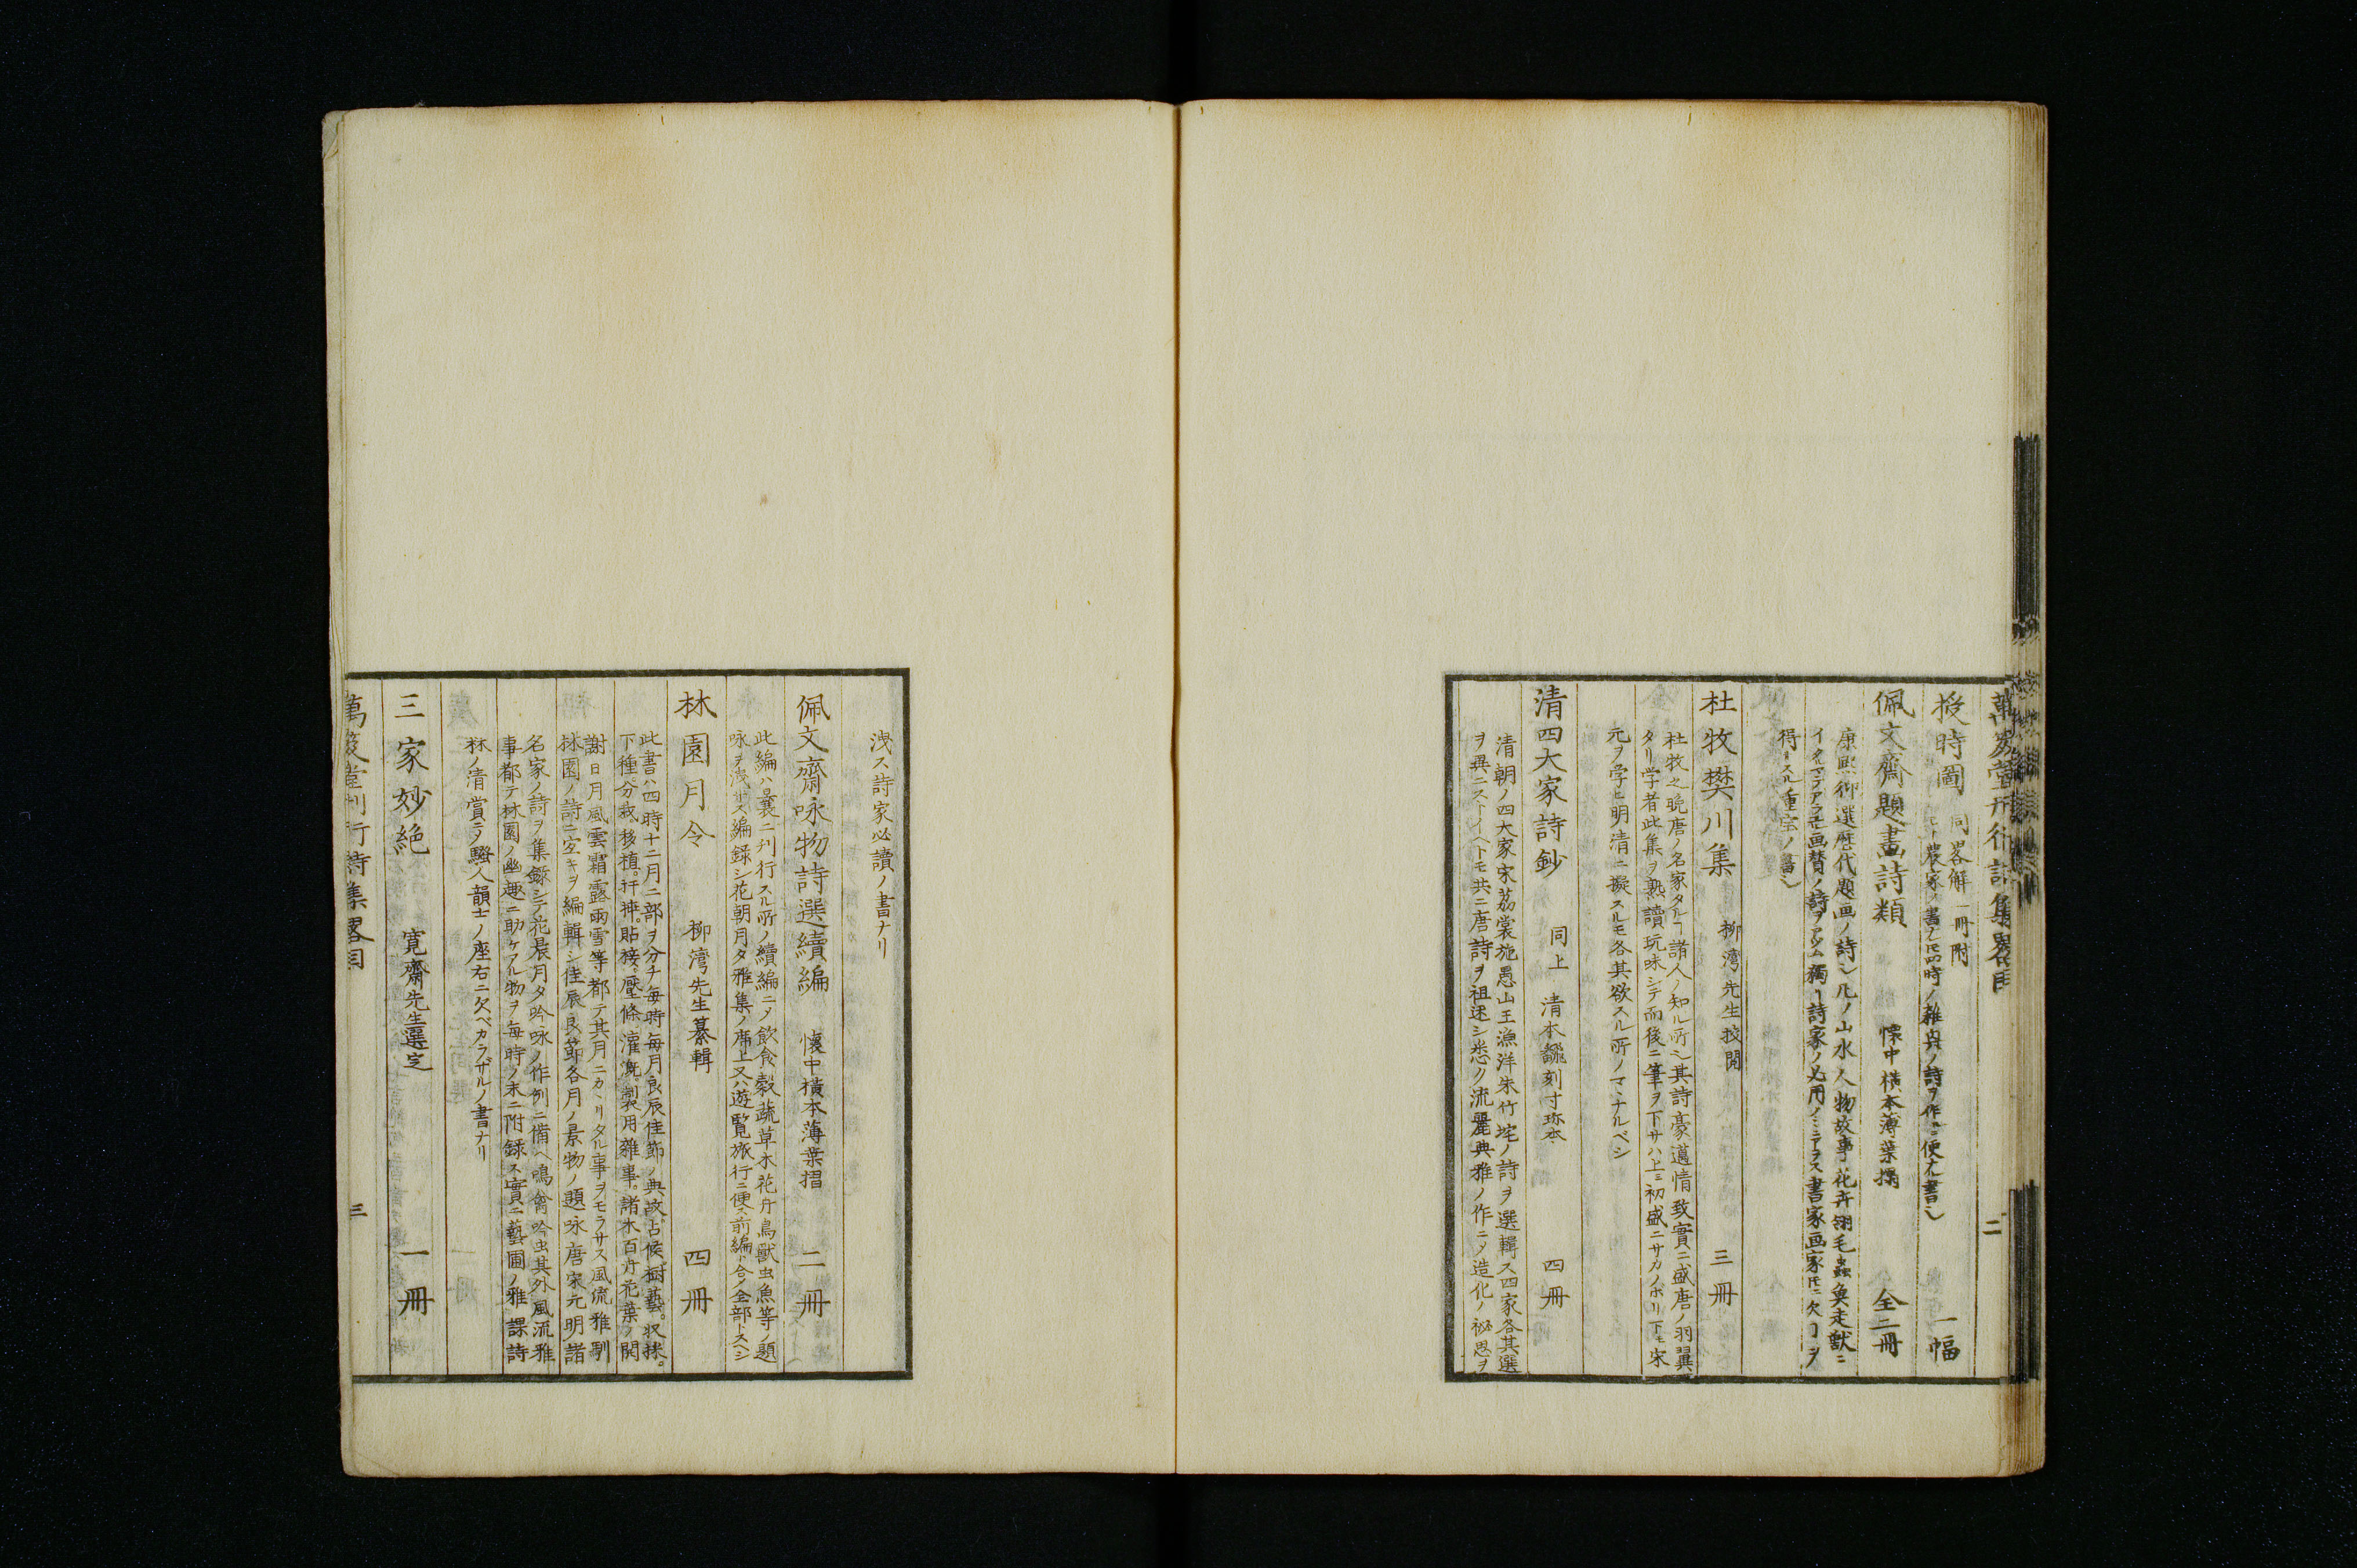 萬笈堂刊行詩集畧目 二
授時圖 同畧解一冊附 一幅
農家ノ書ナレ𪜈四時ノ雜興ノ詩ヲ作ルニ便ナル書ナリ
佩文齋題畫詩類 懐中橫本薄葉摺 全二冊
康熙御選歷代題画ノ詩也凡ノ山水人物故事花卉翎毛蟲魚走獸ニ
イタルマテアラユル画賛ノ詩ヲアツム獨リ詩家ノ必用ノミニアラス書家画家𪜈ニ欠ヿヲ
得サル重宝ノ書也
杜牧樊川集 柳湾先生挍閲 三冊
杜牧之晩唐ノ名家タルヿ諸人ノ知ル所也其詩豪邁情致實ニ盛唐ノ羽翼
タリ学者此集ヲ熟讀玩味シテ而後ニ筆ヲ下サハ上ミ初盛ニサカノホリ下モ宋
元ヲ学ヒ明清ニ擬スルモ各其欲スル所ノマヽナルベシ
清四大家詩鈔 同上 清本飜刻寸珎本 四冊
清朝ノ四大家宋茘裳施愚山王漁洋朱竹垞ノ詩ヲ選輯ス四家各其選
ヲ異ニストイヘトモ共ニ唐詩ヲ祖述シ悉ク流麗典雅ノ作ニノ造化ノ祕思ヲ
洩ス詩家必讀ノ書ナリ
佩文齋咏物詩選續編 懐中橫本薄葉摺 二冊
此編ハ曩ニ刋行スル所ノ續編ニメ飲食穀蔬草木花卉鳥獸虫魚等ノ題
咏ヲ洩サス編錄シ花朝月夕雅集ノ席上又ハ遊覧旅行ニ便ス前編ト合ノ全部トスヘシ
林園月令 柳湾先生纂輯 四冊
此書ハ四時十二月ニ部ヲ分チ毎時毎月良辰佳節ノ典故。占候。樹藝。収採。
下種。分栽。移植。扦挿。貼接。壓條。灌漑。製用雜事。諸木百卉花葉ノ開
謝日月風雲霜露雨雪等都テ其月ニカヽリタル事ヲモラサス風流雅馴
林園ノ詩ニ空キヲ編輯シ佳辰良節各月ノ景物ノ題咏唐宋元明諸
名家ノ詩ヲ集錄シテ花晨月夕吟咏ノ作例ニ備ヘ鳴禽吟虫其外風流雅
事都テ林園ノ幽趣ニ助ケアル物ヲ毎時ノ末ニ附錄ス實ニ藝圃ノ雅課詩
林ノ清賞ニノ騷人韻士ノ座右ニ欠ベカラザルノ書ナリ
三家妙絶 寛齋先生選定 一冊
萬笈堂刊行詩集畧目 三